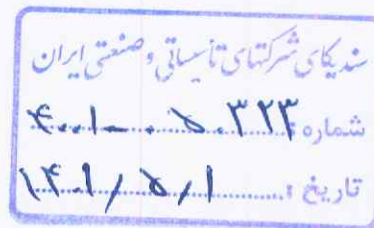 سندیکای شرکتهای تأسیساتی و صنعتی ایران
شماره: ۴۰۰۱۰۰۵۰۳۲۳
تاریخ: ۱۴۰۱/۵/۱